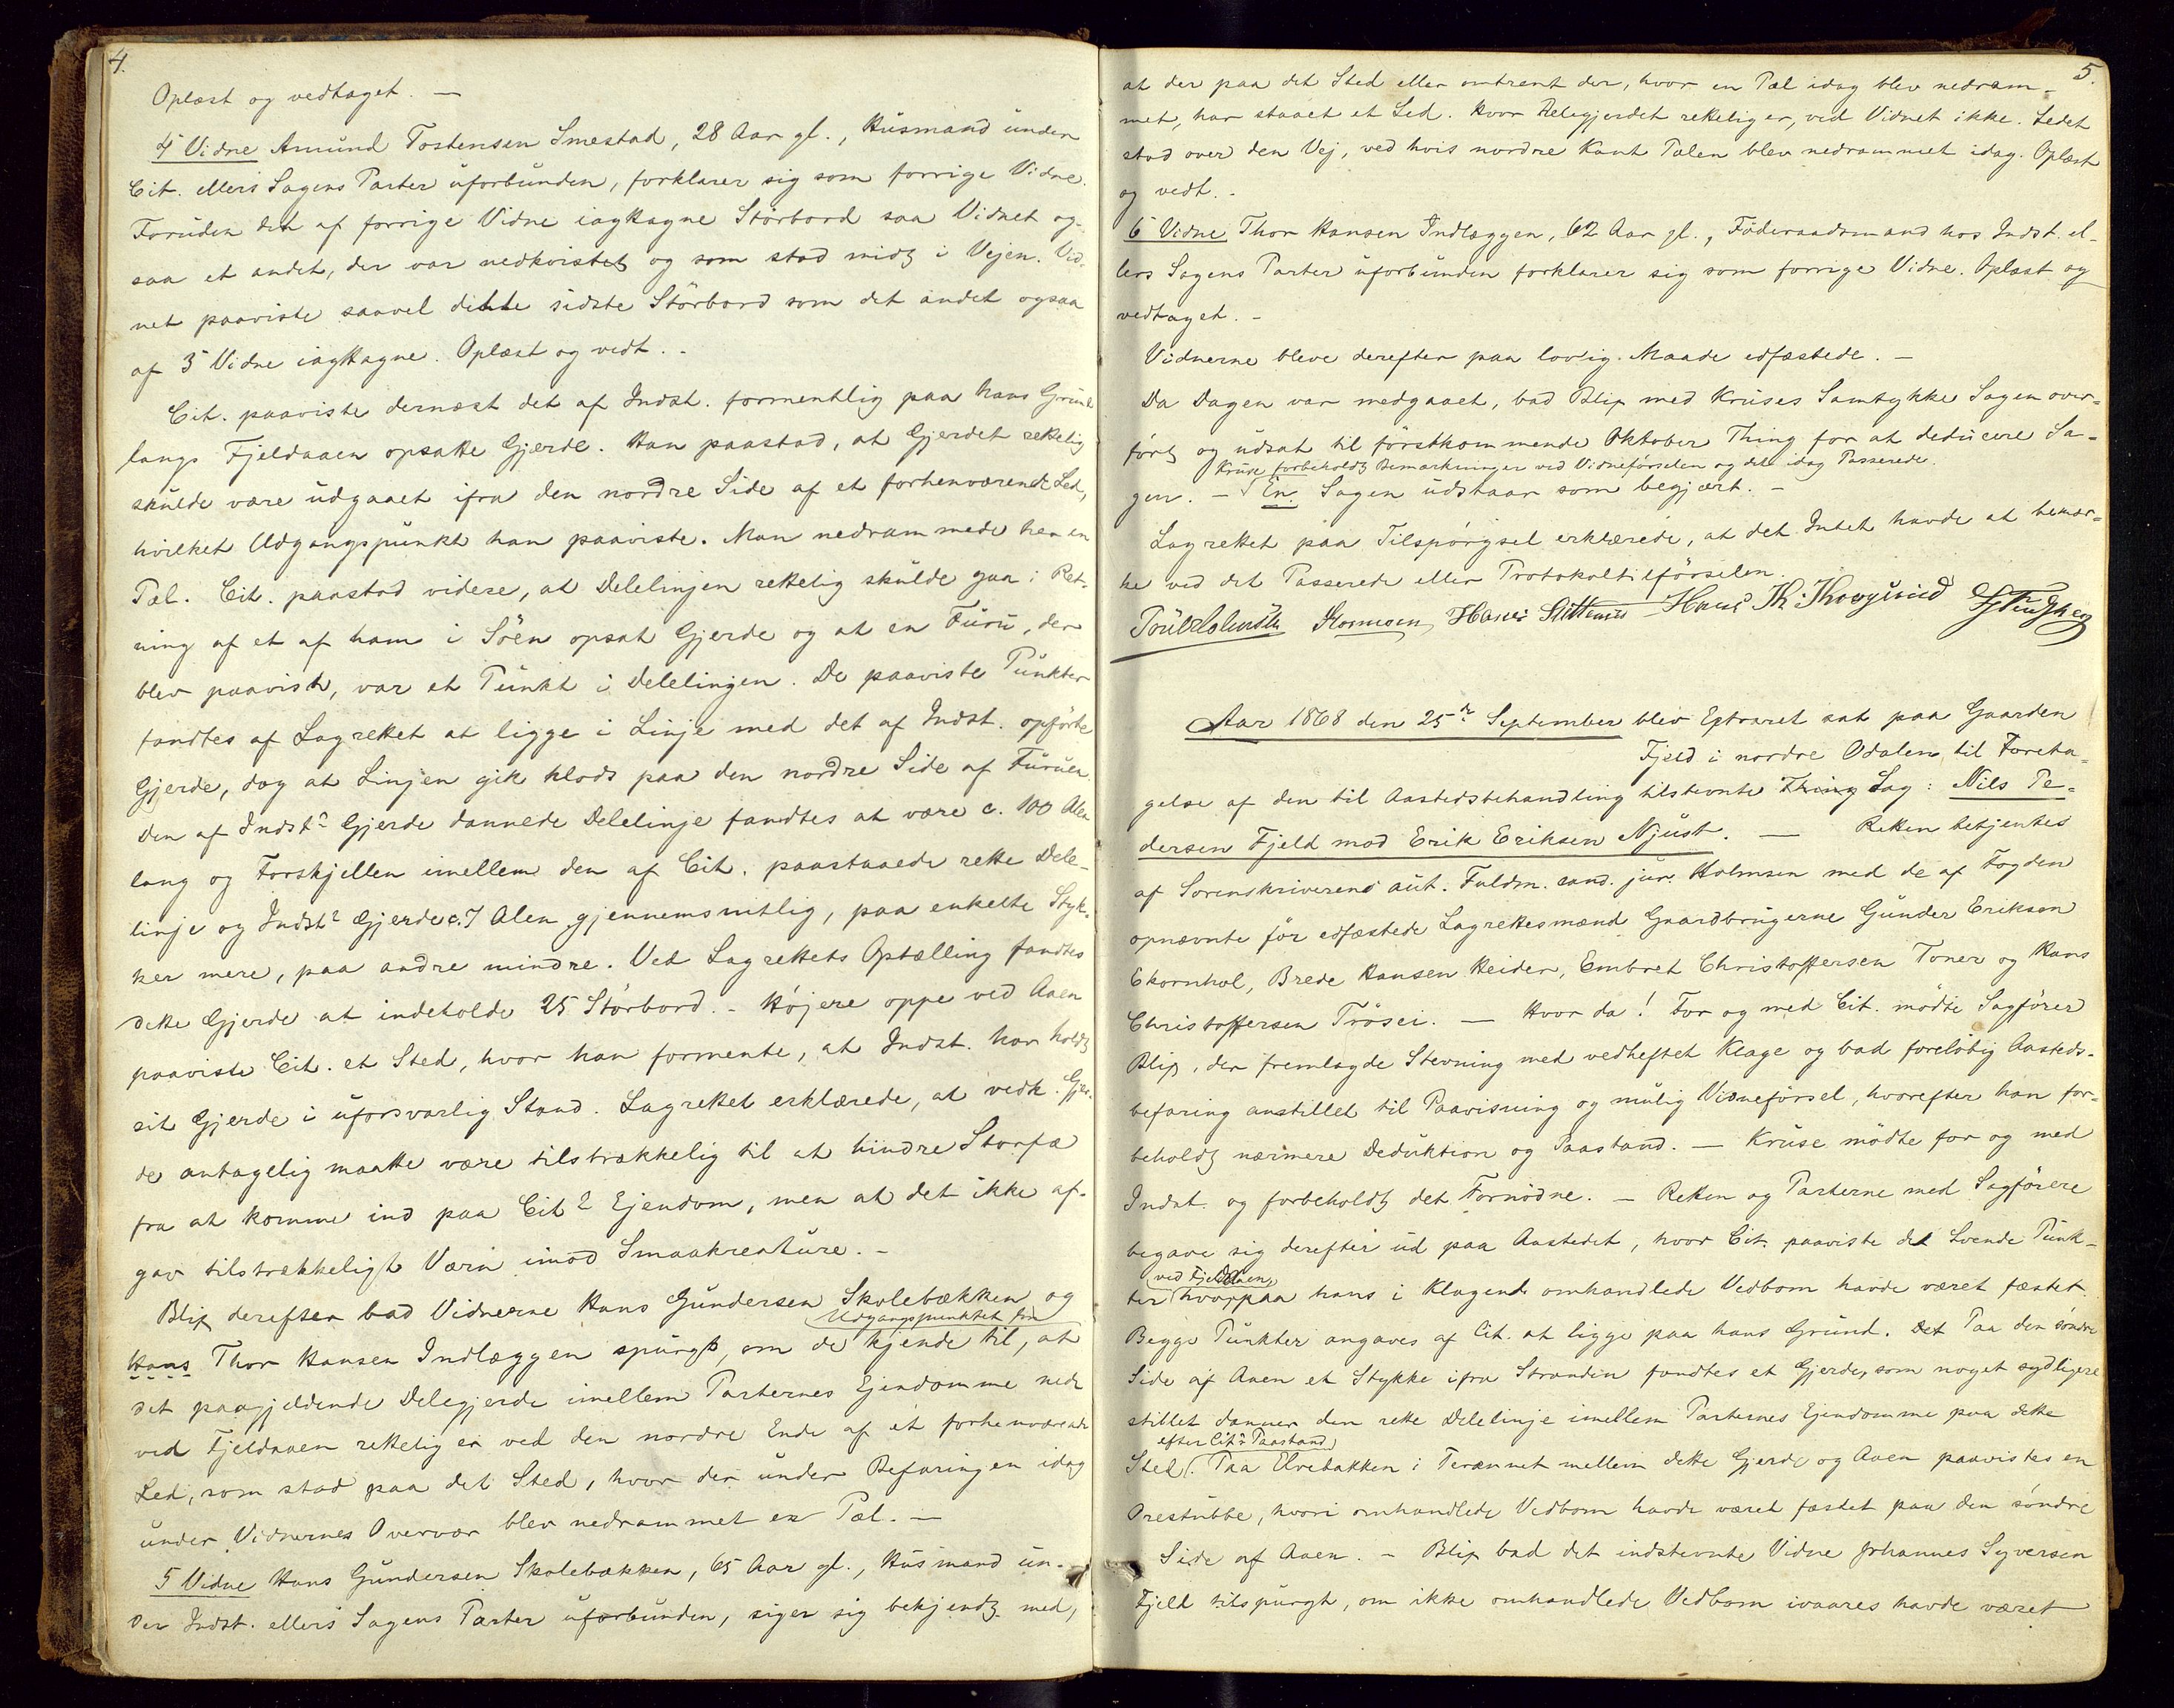 4.
Oplæst og vedtaget. —
4 Vidne Amund Tostensen Smestad, 28 Aar gl., Husmand under
Cit. ellers Sagens Parter uforbunden, forklarer sig som forrige Vidne.
Foruden det af forrige Vidne iagttagne Störbord saa Vidnet og-
saa et andet, der var nedkvistet og som stod midt i Vejen. Vid-
net paaviste saavel dette sidste Störbord som det andet ogsaa
af 3 Vidne iagttagne. Oplæst og vedt. -
Cit. paaviste dernæst det af Indst. formentlig paa hans Grund
langs Fjeldaaen opsatte Gjerde. Han paastod, at Gjerdet rettelig
skulde være udgaaet ifra den nordre Side af et forhenværende Led,
hvilket Udgangspunkt han paaviste. Man nedrammede her en
Pæl. Cit. paastod videre, at Delelinjen rettelig skulde gaa i Ret-
ning af et af ham i Söen opsat Gjerde og at en Furu, der
blev paavist, var et Punkt i Delelinjen. De paaviste Punkter
fandtes af Lagrettet at ligge i Linje med det af Indst. opförte
Gjerde, dog at Linjen gik klods paa den nordre Side af Furuen.
Den af Indsts Gjerde dannede Delelinje fandtes at være c. 100 Alen
lang og Forskjellen imellem den af Cit. paastaaede rette Dele-
linje og Indsts Gjerde c. 7 Alen gjennemsnitlig, paa enkelte Styk-
ker mere, paa andre mindre. Ved Lagrettets Optælling fandtes
dette Gjerde at indeholde 25 Störbord. - Höjere oppe ved Aaen
paaviste Cit. et Sted, hvor han formente, at Indst. har holdt
sit Gjerde i uforsvarlig Stand. Lagrettet erklærede, at vedk. Gjer-
de antagelig maatte være tilstrækkelig til at hindre Storfæ
fra at komme ind paa Cits Ejendom, men at det ikke af-
gav tilstrækkeligt Værn imod Smaakreature. -
Blix derefter bad Vidnerne Hans Gundersen Skolebækken og
Udgangspunktet for
Hans Thor Hansen Indlæggen spurgt, om de kjende til, at
det paagjeldende Delegjerde imellem Parternes Ejendomme nede
ved Fjeldaaen rettelig er ved den nordre Ende af et forhenværende
Led, som stod paa det Sted, hvor der under Befaringen idag
under Vidnernes Overvær blev nedrammet en Pæl. —
5 Vidne Hans Gundersen Skolebækken, 65 Aar gl., Husmand un-
der Indst. ellers Sagens Parter uforbunden, siger sig bekjendt med,
5.
at der paa det Sted eller omtrent der, hvor en Pæl idag blev nedram-
met, har staaet et Led. Hvor Delegjerdet rettelig er, ved Vidnet ikke. Ledet
stod over den Vej, ved hvis nordre Kant Pælen blev nedrammet idag. Oplæst
og vedt. -
6 Vidne Thor Hansen Indlæggen, 62 Aar gl., Föderaadsmand hos Indst. el-
lers Sagens Parter uforbunden forklarer sig som forrige Vidne. Oplæst og
vedtaget. -
Vidnerne bleve derefter paa lovlig Maade edfæstede. —
Da Dagen var medgaaet, bad Blix med Kruses Samtykke Sagen over-
fört og udsat til förstkommende Oktober Thing for at deducere Sa-
Kruse forbeholdt Bemærkninger ved Vidneförselen og det idag Passerede.
gen. — En. Sagen udstaar som begjært. —
Lagrettet paa Tilspörgsel erklærede, at det Intet havde at bemær-
ke ved det Passerede eller Protokoltilförselen.
Aar 1868 den 25de September blev Extraret sat paa Gaarden
Fjeld i nordre Odalen til Foreta-
gelse af den til Aastedsbehandling tilstevnte Thing Sag: Nils Pe-
dersen Fjeld mod Erik Eriksen Njust. — Retten betjentes
af Sorenskriverens aut. Fuldm. cand. jur. Holmsen med de af Fogden
opnævnte för edfæstede Lagrettesmænd Gaardbrugerne Gunder Eriksen
Ekornhol, Brede Hansen Heider, Embret Christoffersen Toner og Hans
Christoffersen Trösei. — Hvor da! For og med Cit. mödte Sagförer
Blix, der fremlagde Stevning med vedheftet Klage og bad forelöbig Aasteds-
befaring anstillet til Paavisning og mulig Vidneförsel, hvorefter han for-
beholdt nærmere Deduktion og Paastand. — Kruse mödte for og med
Indst. og forbeholdt det Fornödne. — Retten og Parterne med Sagförere
begave sig derefter ud paa Aastedet, hvor Cit. paaviste de tvende Punk-
ved Fjeldaaen,
ter hvorpaa hans i Klagen omhandlede Vedbom havde været fæstet.
Begge Punkter angaves af Cit. at ligge paa hans Grund. Det Paa den söndre
Side af Aaen et Stykke ifra Stranden fandtes et Gjerde, som noget sydligere
stillet danner den rette Delelinje imellem Parternes Ejendomme paa dette
efter Cits Paastand
Sted. Paa Elvebakken i Terænnet mellem dette Gjerde og Aaen paavistes en
Orestubbe, hvori omhandlede Vedbom havde været fæstet paa den söndre
Side af Aaen. - Blix bad det indstevnte Vidne Johannes Syversen
Fjeld tilspurgt, om ikke omhandlede Vedbom ivaares havde været